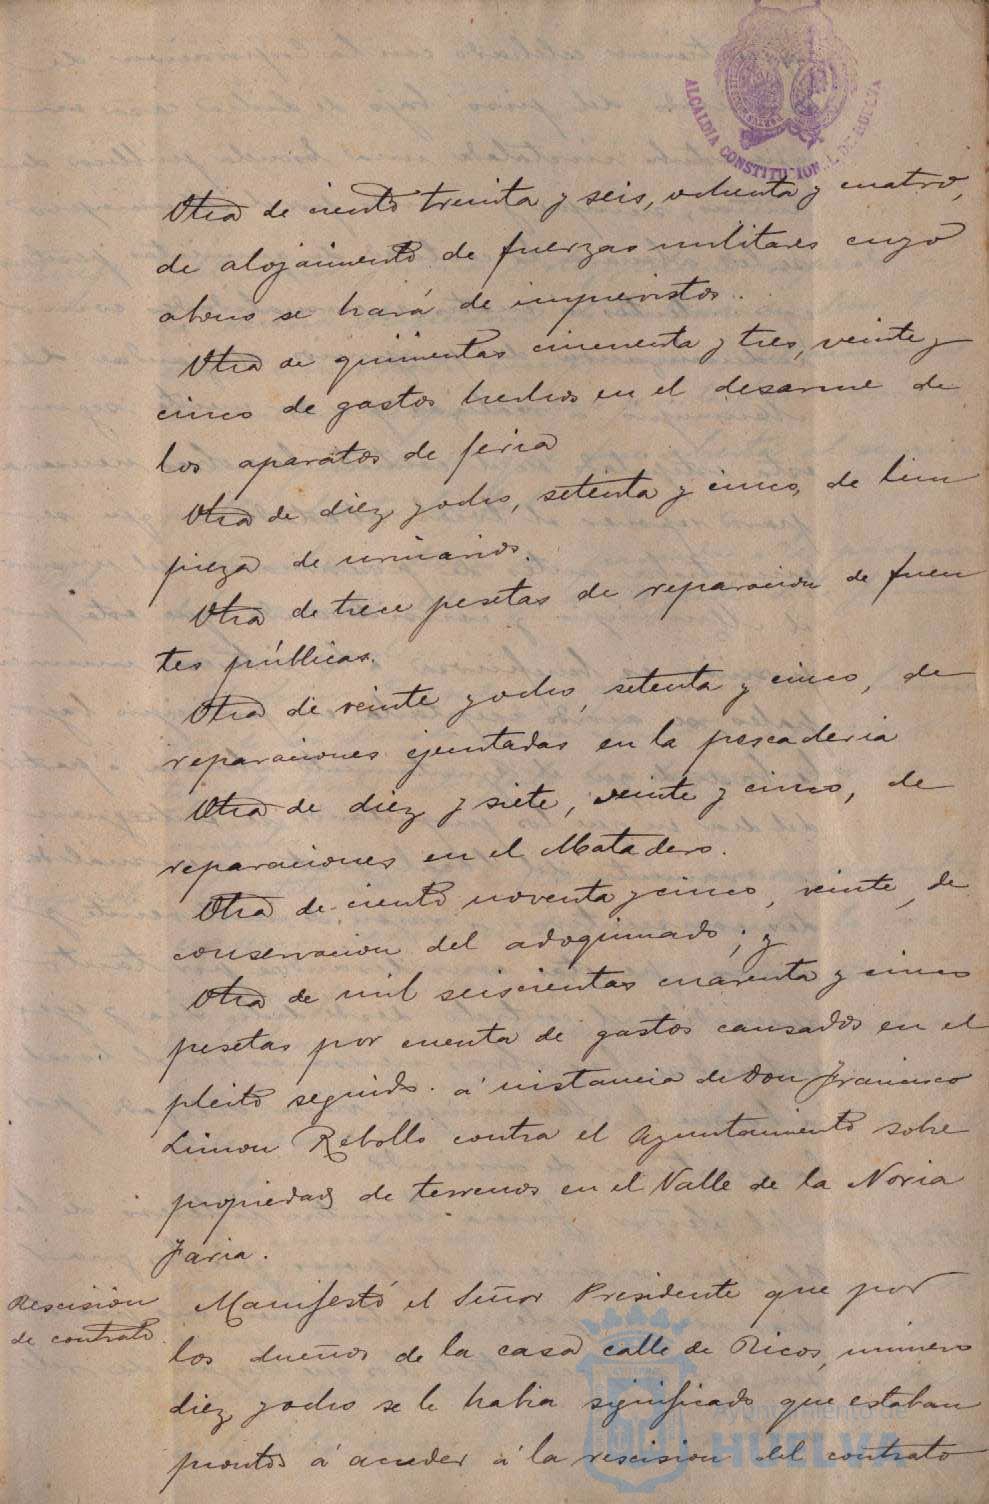 ALCALDIA CONSTITUCIONAL DE HUELVA
Otra de ciento treinta y seis, ochenta y cuatro,
de alojamiento de fuerzas militares cuyo
abono se hará de imprevistos.
Otra de quinientas cincuenta y tres, veinte y
cinco de gastos hechos en el desarme de
los aparatos de feria
Otra de diez y ocho, setenta y cinco, de lim
pieza de urinarios.
Otra de trece pesetas de reparacion de fuen
tes públicas.
Otra de veinte y ocho, setenta y cinco, de
reparaciones ejecutadas en la pescaderia
Otra de diez y siete, veinte y cinco, de
reparaciones en el Matadero.
Otra de ciento noventa y cinco, veinte, de
conservacion del adoquinado; y
Otra de mil seiscientas cuarenta y cinco
pesetas por cuenta de gastos causados en el
pleito seguido á instancia de Don Francisco
Limon Rebollo contra el Ayuntamiento sobre
propiedad de terrenos en el Valle de la Noria
Faria.
Rescision
de contrato
Manifestó el Señor Presidente que por
los dueños de la casa calle de Ricos, numero
diez y ocho se le habia significado que estaban
prontos á acceder á la rescision del contrato
Ayuntamiento de
HUELVA